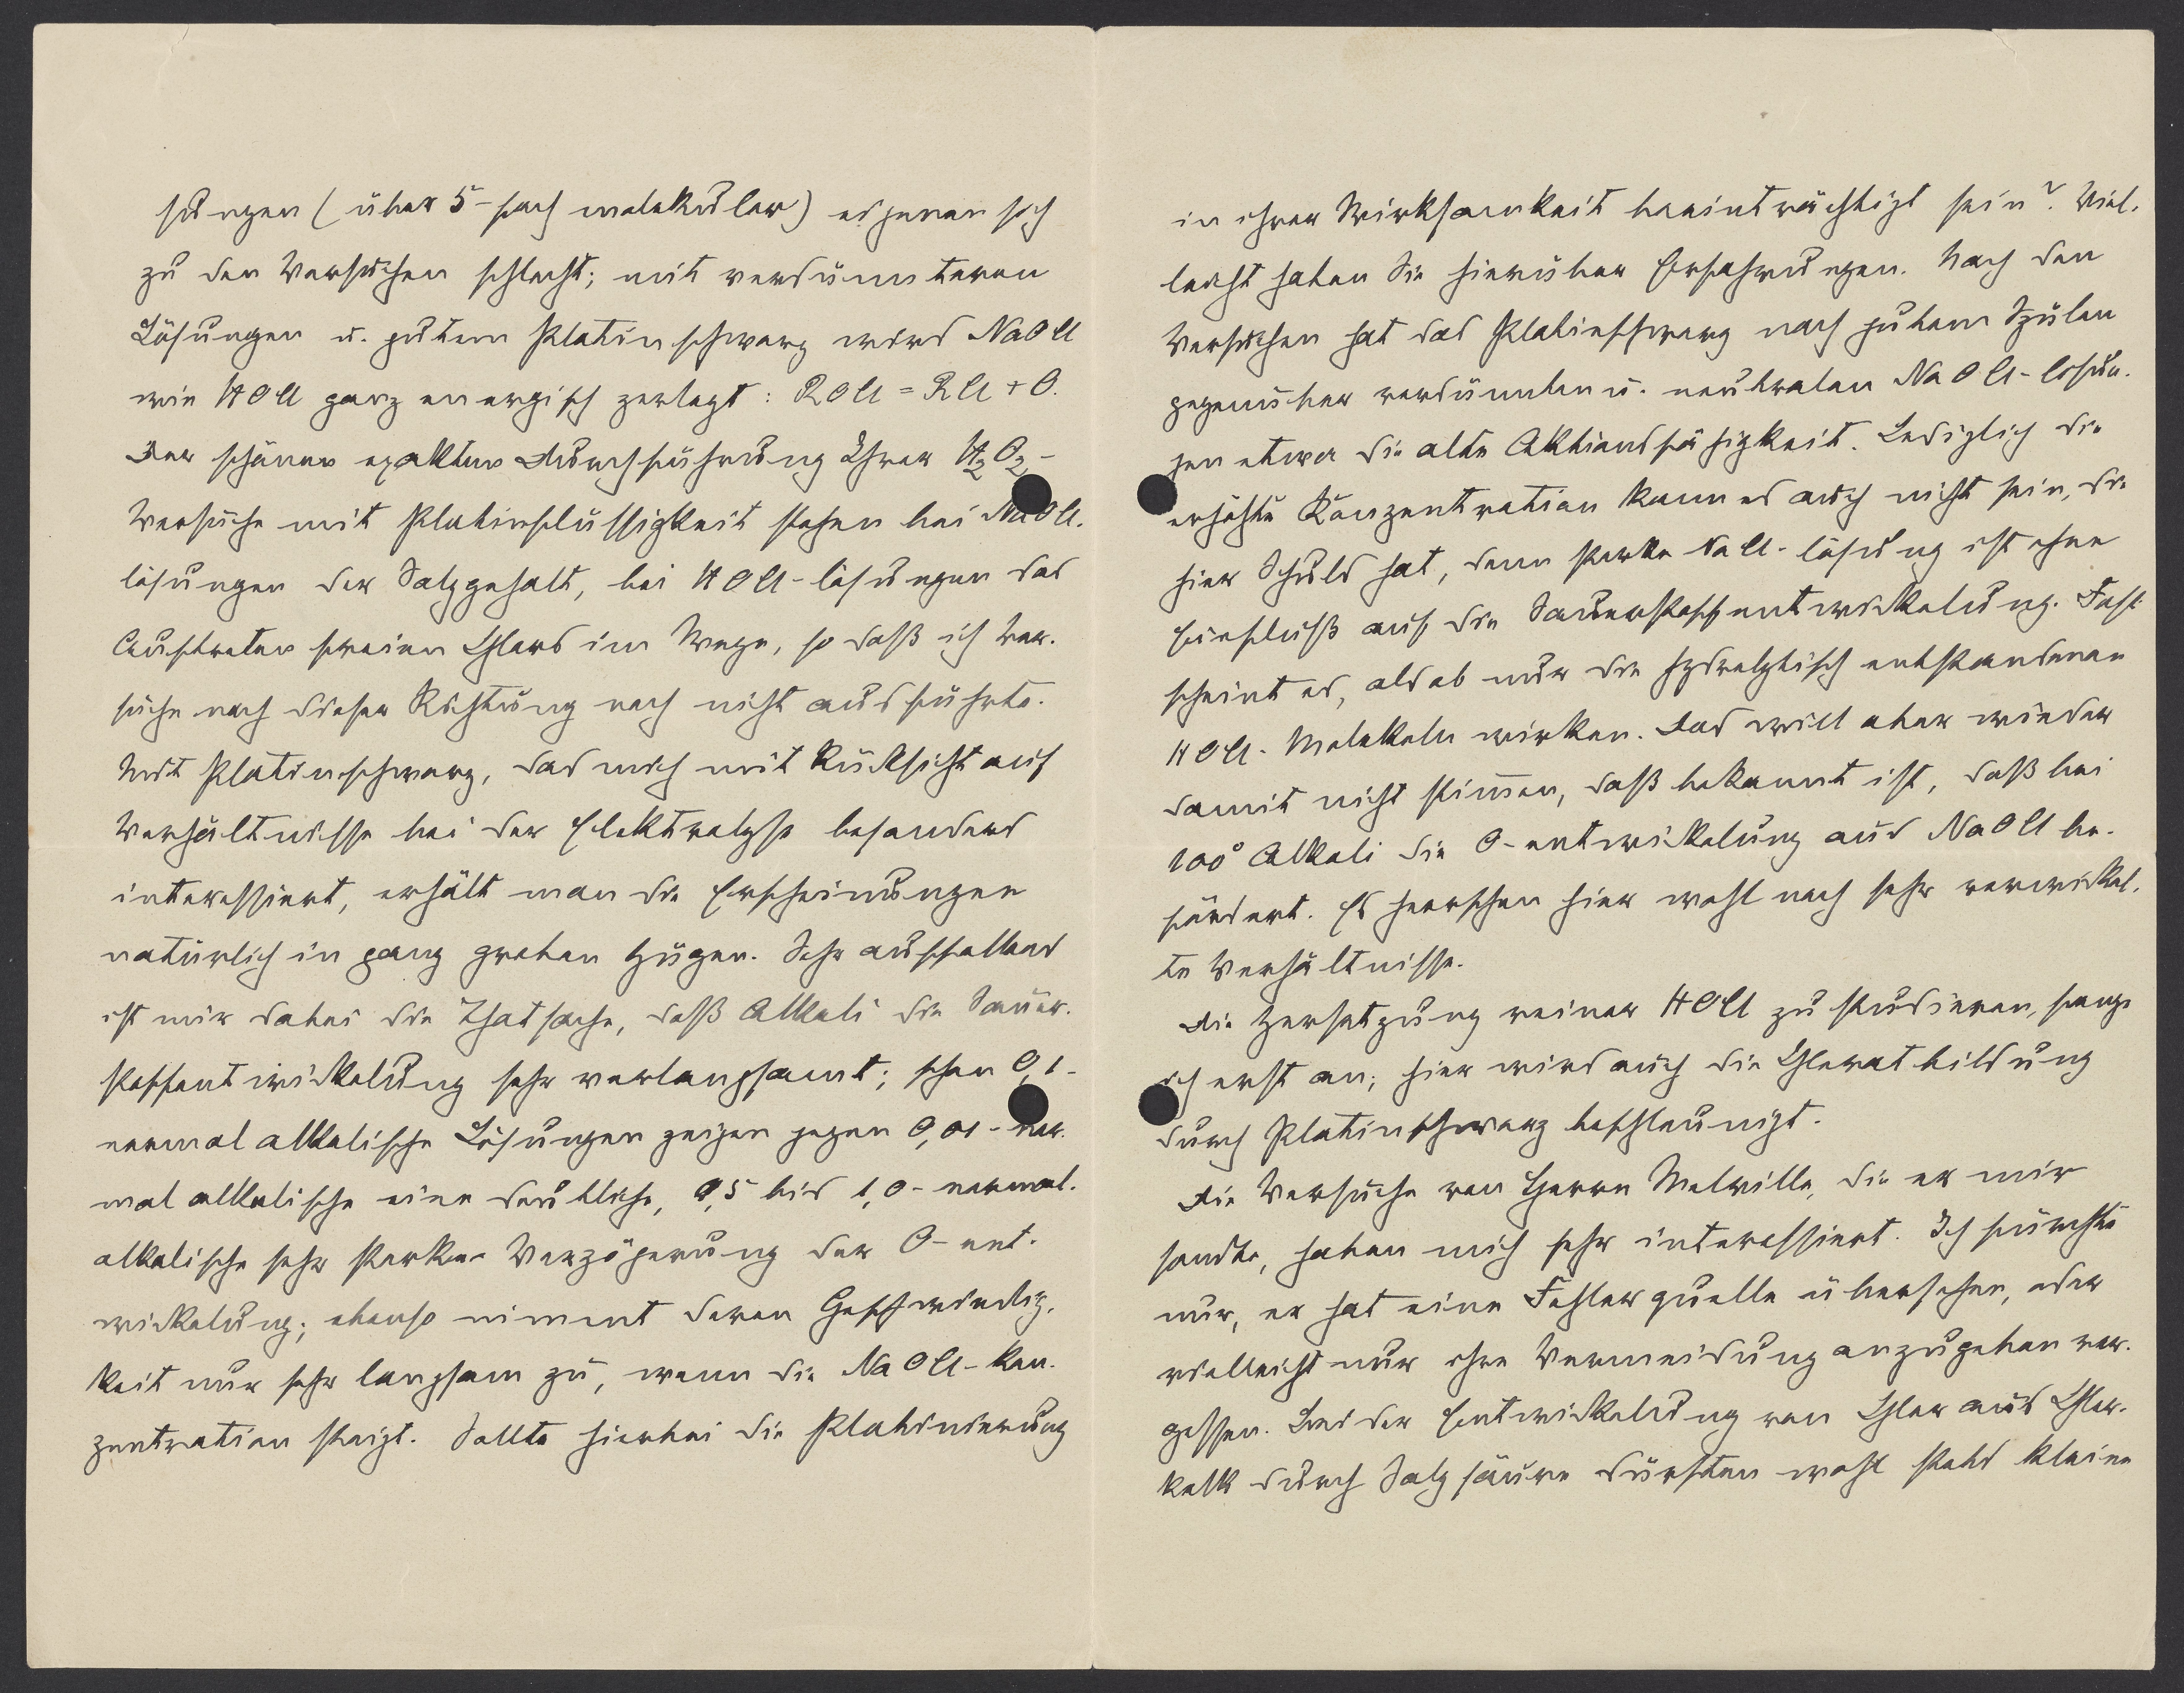 sungen (über 5-fach molekular) eigenen sich
zu den Versuchen schlecht; mit verdünnteren
Lösungen u. gutem Platinschwarz wird NaOCl
wie HOCl ganz energisch zerlegt: ROCl = RCl + O.
Der schönen exakten Durchführung Ihrer H2O2-
Versuche mit Platinflüssigkeit stehen bei NaOCl-
lösungen der Salzgehalt, bei HOCl-lösungen das
Auftreten freien Chlors im Wege, so daß ich Ver-
suche nach dieser Richtung noch nicht ausführte.
Mit Platinschwarz, das mich mit Rücksicht auf
Verhältnisse bei der Elektrolyse besonders
interessiert, erhält man die Erscheinungen
natürlich in ganz groben Zügen. Sehr auffallend
ist mir dabei die Thatsache, daß Alkali die Sauer-
stoffentwickelung sehr verlangsamt; schon 0,1-
normal alkalische Lösungen zeigen gegen 0,01-nor-
mal alkalische eine deutliche, 0,5 bis 1,0-normal-
alkalische sehr starke Verzögerung der O-ent-
wickelung; ebenso nimmt deren Geschwindig-
keit nur sehr langsam zu, wenn die NaOCl-Kon-
zentration steigt. Sollte hierbei die Platinierung
in ihrer Wirksamkeit beeinträchtigt sein? Viel-
leicht haben Sie hierüber Erfahrungen. Nach den
Versuchen hat das Platinschwarz nach gutem Spülen
gegenüber verdünnten u. neutralen NaOCl-lösun-
gen etwa die alte Aktionsfähigkeit. Lediglich die
erhöhte Konzentration kann es auch nicht sein, die
hier Schuld hat, denn starke NaCl-lösung ist ohne
Einfluß auf die Sauerstoffentwickelung. Fast
scheint es, als ob nur die hydrolytisch entstandenen
HOCl-Molekeln wirken. Das will aber wieder
damit nicht stimmen, daß bekannt ist, daß bei
100° Alkali die O-entwickelung aus NaOCl be-
fördert. Es herrschen hier wohl noch sehr verwickel-
te Verhältnisse.
Die Zersetzung reiner HOCl zu studieren, fange
ich erst an; hier wird auch die Chloratbildung
durch Platinschwarz beschleunigt.
Die Versuche von Herrn Melville, die er mir
sandte, haben mich sehr interessiert. Ich fürchte
nur, er hat eine Fehlerquelle übersehen, oder
vielleicht nur ihre Vermeidung anzugeben ver-
gessen. Bei der Entwickelung von Chlor aus Chlor-
kalk durch Salzsäure dürften wohl stets kleine